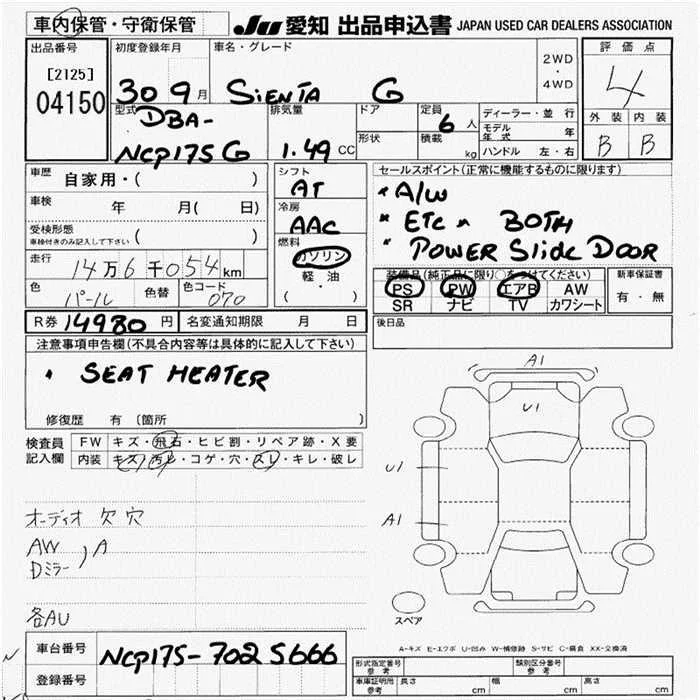 車内保管・守衛保管
JU 愛知 出品申込書 JAPAN USED CAR DEALERS ASSOCIATION
出品番号
[2125]
04150
初度登録年月
30 9月
車名・グレード
SIENTA G
2WD
・
4WD
評価点
4
外装 内装
B B
型式
DBA-
NCP175G
排気量
1.49 CC
ドア
形状
定員
6人
積載
kg
ディーラー・並行
モデル年式 年
ハンドル 左・右
車歴 自家用・( )
車検 年 月( 日)
受検形態
車検付きのみ記入して下さい ( )
走行 14万6千054km
色 パール 色替 色コード 070
シフト
AT
冷房
AAC
燃料
ガソリン
軽・油
( )
セールスポイント(正常に機能するものに限ります)
* A/W
* ETC * BOTH
* POWER Slide DOOR
装備品(純正品に限り○をつけてください)
PS PW エアB AW
SR ナビ TV カワシート
新車保証書
有・無
R券 14980 円 名変通知期限 月 日
後日品
注意事項申告欄(不具合内容等は具体的に記入して下さい)
* SEAT HEATER
修復歴 有〔箇所 〕
検査員記入欄
FW キズ・飛石・ヒビ割・リペア跡・X要
内装 キズ・汚レ・コゲ・穴・スレ・キレ・破レ
オーディオ 欠 穴
AW
Dミラー )A
各AU
A1
U1
U1
A1
スペア
A-キズ E-エクボ U-凹み W-補修跡 S-サビ C-腐食 XX-交換済
車台番号 NCP175-7025666
登録番号
形式指定番号 参考 類別区分番号 参考
車庫証明用 参考 長さ cm 幅 cm 高さ cm